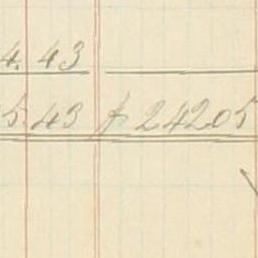 4.43
5.43 $ 24205